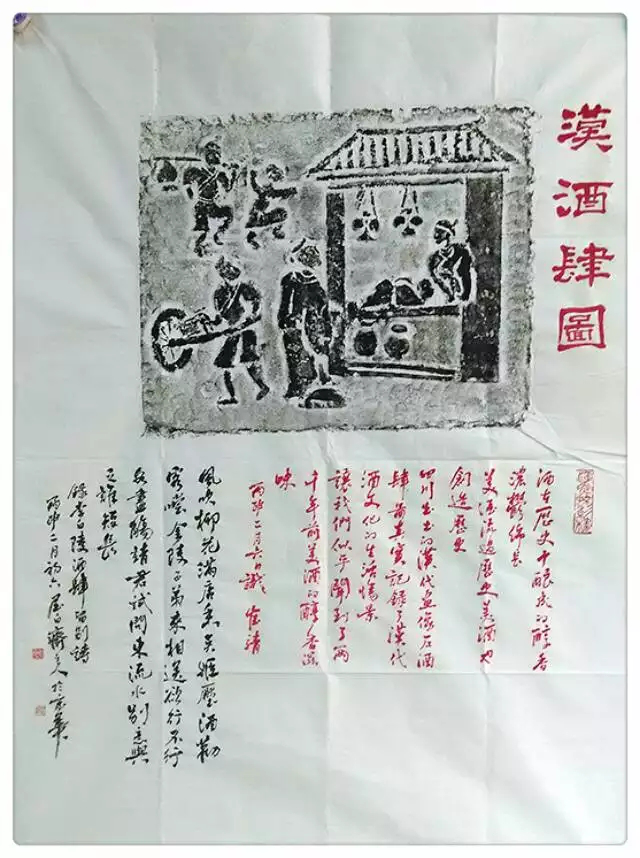 漢酒肆圖
酒在歷史中釀成的醇香
濃鬱綿長
美酒流過歷史美酒也
創造歷史
四川出土的漢代画像石酒
肆圖真實記錄了漢代
酒文化的生活情景
讓我們似乎聞到了兩
千年前美酒的醇香滋
味
丙申二月六日識
風吹柳花滿店香吳姬壓酒勸
客嘗金陵子弟來相送欲行不行
各盡觴請君試問東流水別意與
之誰短長
錄李白陵酒肆留別詩
丙申二月初六 齋主人於京華